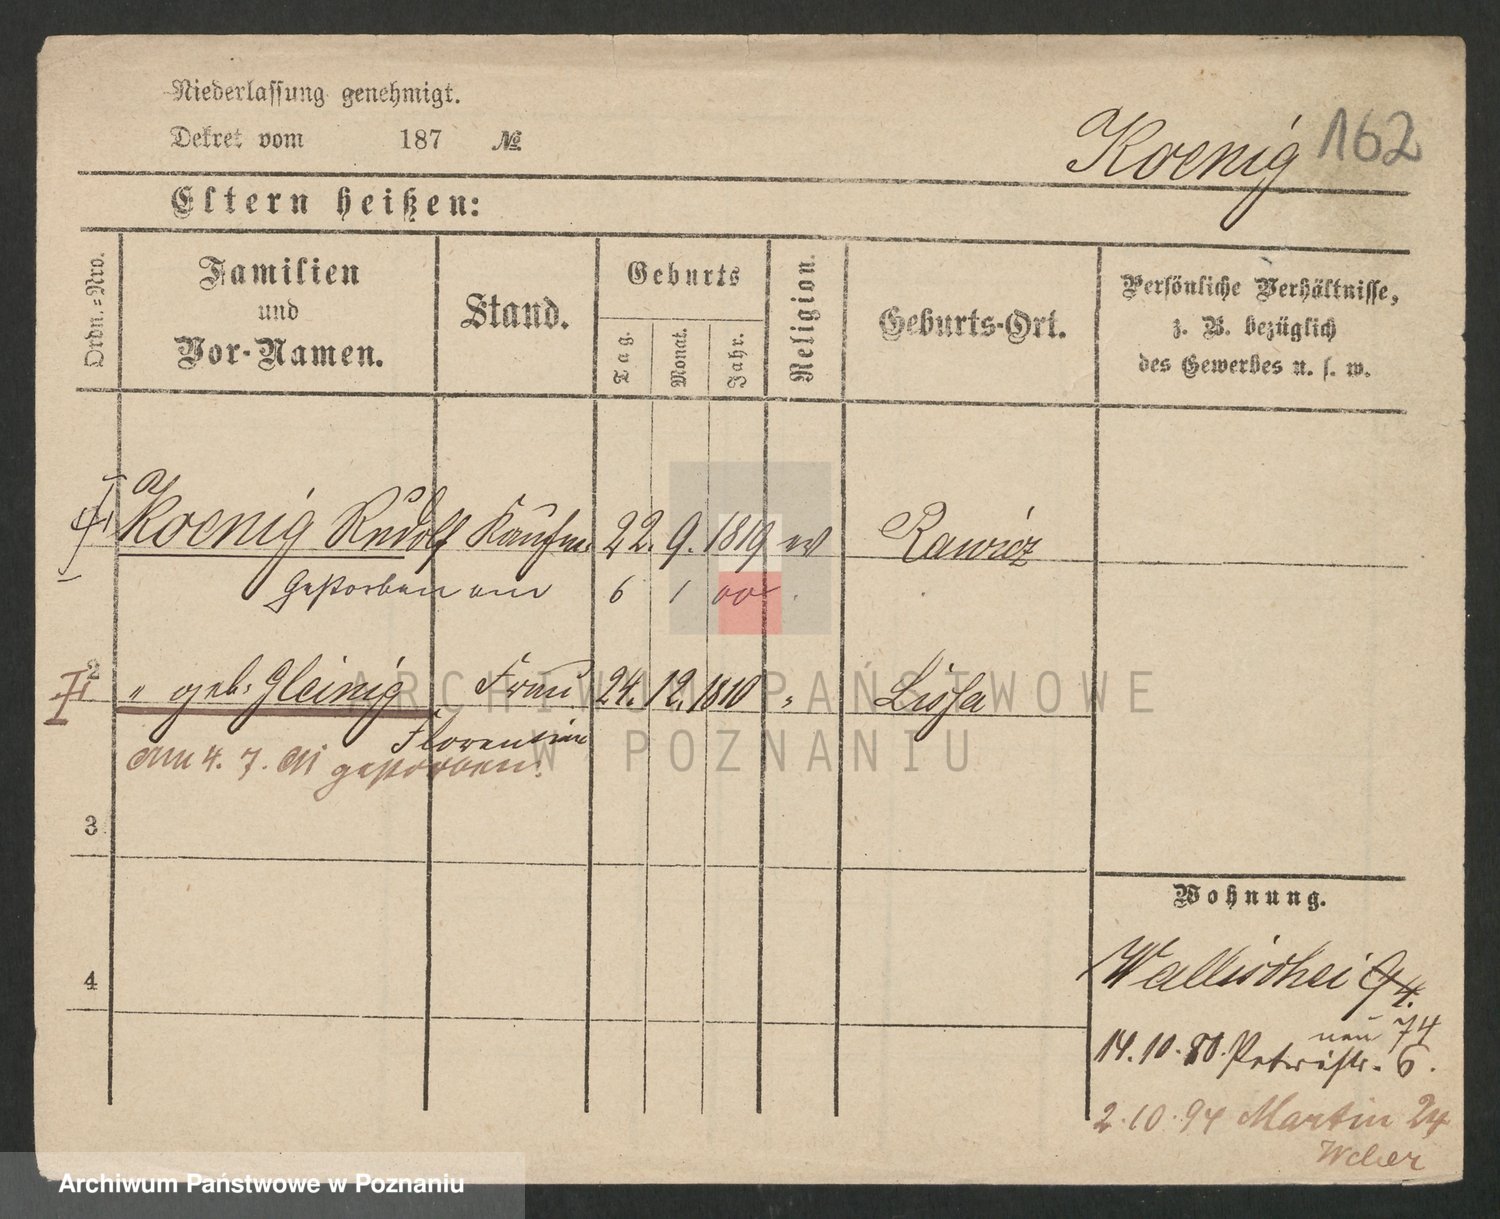 Niederlassung genehmigt.
Dekret vom 187 №
Koenig 162
Eltern heißen:
Ordn.=Nro.
Familien und Vor-Namen.
Stand.
Geburts
Tag.
Monat.
Jahr.
Religion.
Geburts-Ort.
Persönliche Verhältnisse, z. B. bezüglich des Gewerbes u. s. w.
1 Koenig Rudolf Kaufm. 22. 9. 1819 ev Rawicz
Gestorben am 6 1 00
2 " geb. Gleinig Frau 24. 12. 1810 " Lissa
Florentine
Am 4. 7. 81 gestorben.
3
4
Wohnung.
Wallischei 94.
neu 74
14.10.80. Petristr. 6.
2.10.94 Martin 24
Weber
ARCHIWUM PAŃSTWOWE
W POZNANIU
Archiwum Państwowe w Poznaniu